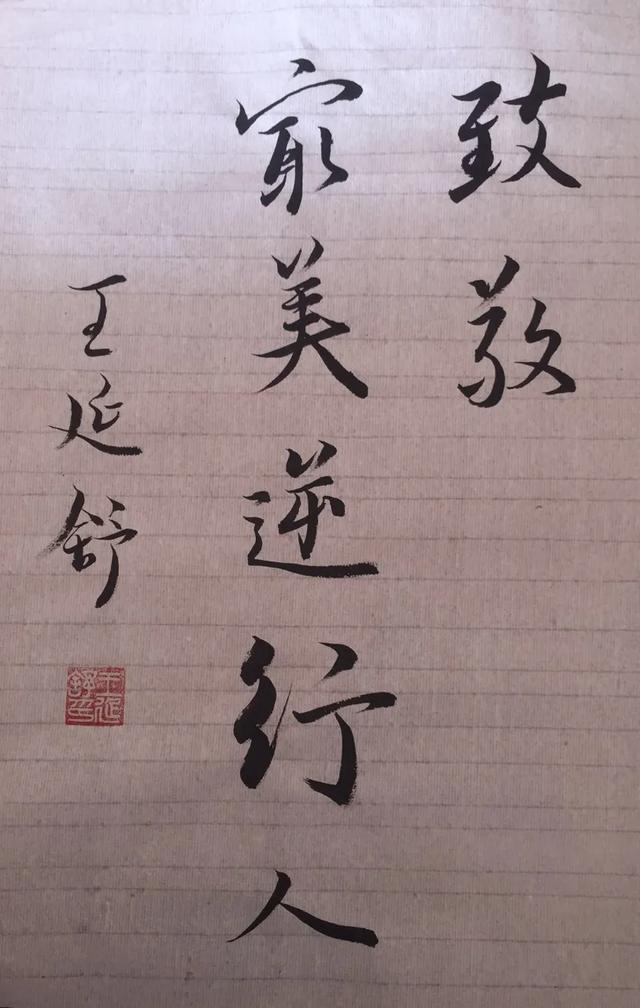 致敬
最美逆行人
王延舒
王延舒印